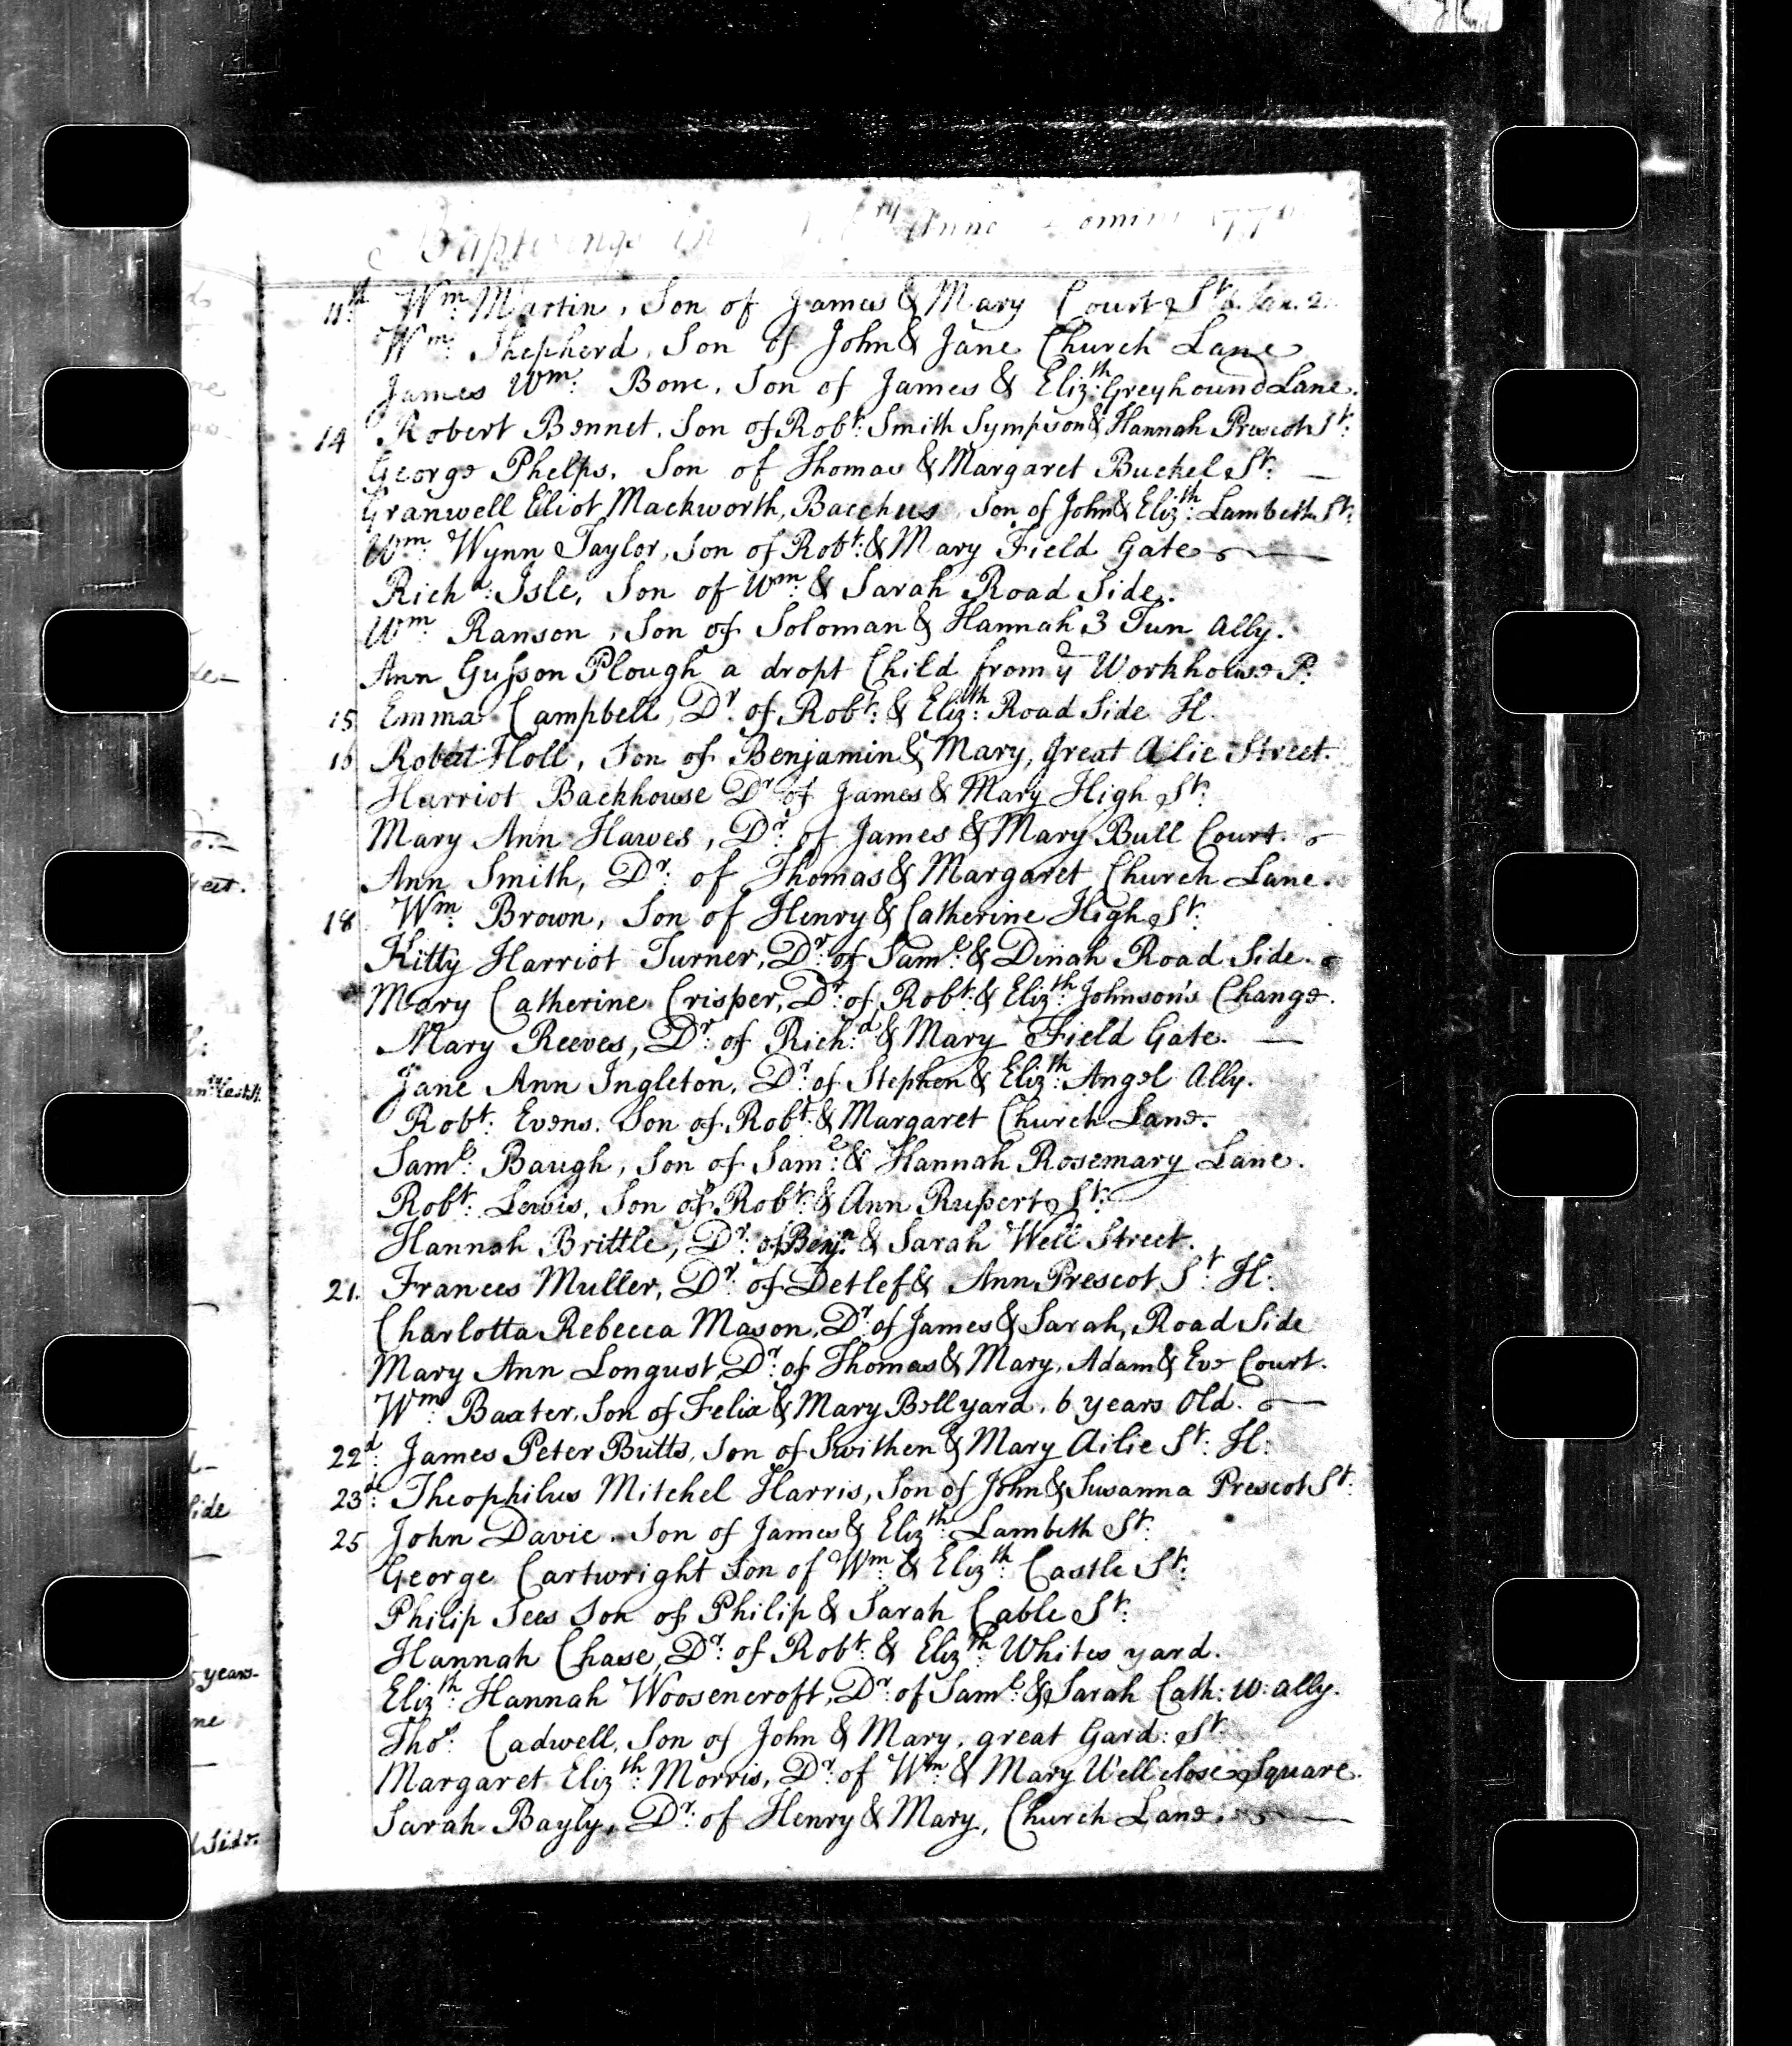 Baptisings in Anno Domini 177
11th Wm: Martin, Son of James & Mary Court St:
Wm: Shepherd, Son of John & Jane Church Lane
James Wm: Bone, Son of James & Elizth: Greyhound Lane.
14 Robert Bennet, Son of Robt: Smith Sympson & Hannah Prescot St:
George Phelps, Son of Thomas & Margaret Buckel St:
Granwell Eliot Mackworth, Bacchus, Son of John & Elizth: Lambeth St:
Wm: Wynn Taylor, Son of Robt: & Mary Field Gate
Richd: Isle, Son of Wm: & Sarah Road Side.
Wm: Ranson, Son of Soloman & Hannah 3 Tun Ally.
Ann Gusson Plough a dropt Child from ye Workhouse P:
15 Emma Campbell, Dr: of Robt: & Elizth: Road Side H.
16 Robert Holl, Son of Benjamin & Mary, great Ailie Street.
Harriot Backhouse Dr: of James & Mary High St:
Mary Ann Hawes, Dr: of James & Mary Bull Court.
Ann Smith, Dr: of Thomas & Margaret Church Lane.
18 Wm Brown, Son of Henry & Catherine High St:
Kitty Harriot Turner, Dr: of Saml: & Dinah Road Side.
Mary Catherine Crisper, Dr: of Robt: & Elizth: Johnson's Change.
Mary Reeves, Dr: of Richd: & Mary Field Gate.
Jane Ann Ingleton, Dr: of Stephen & Elizth: Angel Ally.
Robt: Evens, Son of Robt: & Margaret Church Lane.
Saml: Baugh, Son of Saml: & Hannah Rosemary Lane.
Robt: Lewis, Son of Robt: & Ann Rupert St:
Hannah Brittle, Dr: of Benjn: & Sarah Well Street.
21. Frances Muller, Dr: of Detlef & Ann Prescot St: H:
Charlotta Rebecca Mason, Dr: of James & Sarah, Road Side
Mary Ann Longust, Dr: of Thomas & Mary, Adam & Eve Court.
Wm: Baxter, Son of Felix & Mary Bell yard. 6 years Old.
22d: James Peter Butts, Son of Swithen & Mary Ailie St: H:
23d: Theophilus Mitchel Harris, Son of John & Susanna Prescot St:
25 John Davie. Son of James & Elizth: Lambeth St:
George Cartwright Son of Wm: & Elizth: Castle St:
Philip Sees Son of Philip & Sarah Cable St:
Hannah Chase, Dr: of Robt: & Elizth: Whites yard.
Elizth: Hannah Woosencroft, Dr: of Saml: & Sarah Cath: W: ally.
Thos: Cadwell, Son of John & Mary, great Gard: St:
Margaret Elizth: Morris, Dr: of Wm: & Mary Well close Square.
Sarah Bayly, Dr: of Henry & Mary, Church Lane.